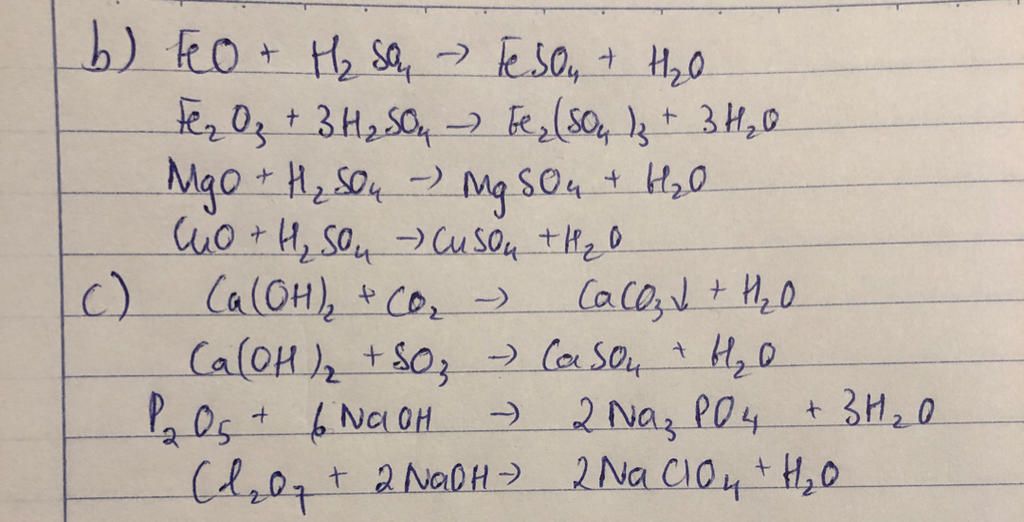 b) FeO + H₂SO₄ → FeSO₄ + H₂O
Fe₂O₃ + 3H₂SO₄ → Fe₂(SO₄)₃ + 3H₂O
MgO + H₂SO₄ → MgSO₄ + H₂O
CuO + H₂SO₄ → CuSO₄ + H₂O
c) Ca(OH)₂ + CO₂ → CaCO₃↓ + H₂O
Ca(OH)₂ + SO₃ → CaSO₄ + H₂O
P₂O₅ + 6NaOH → 2Na₃PO₄ + 3H₂O
Cl₂O₇ + 2NaOH → 2NaClO₄ + H₂O